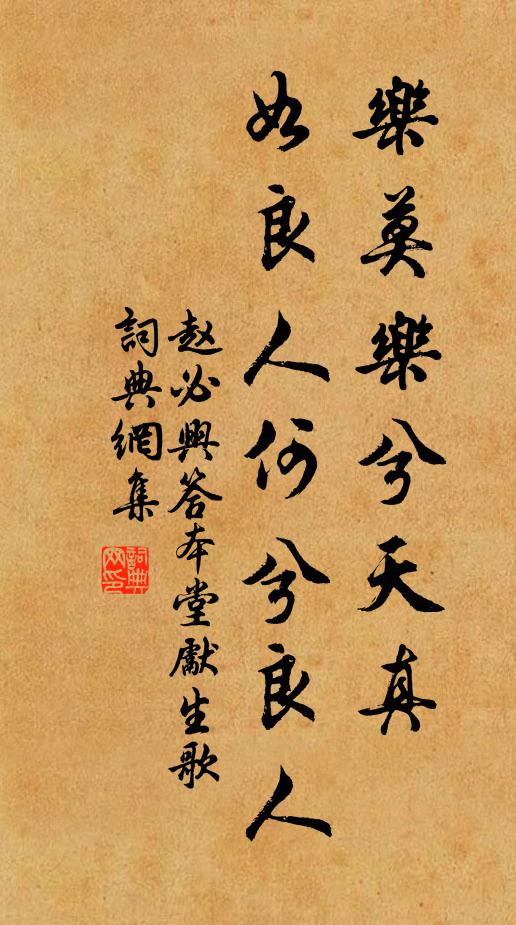 樂莫樂兮天真
如良人何兮良人
赵必興答本堂獻生歌
詞典網集
詞典網印